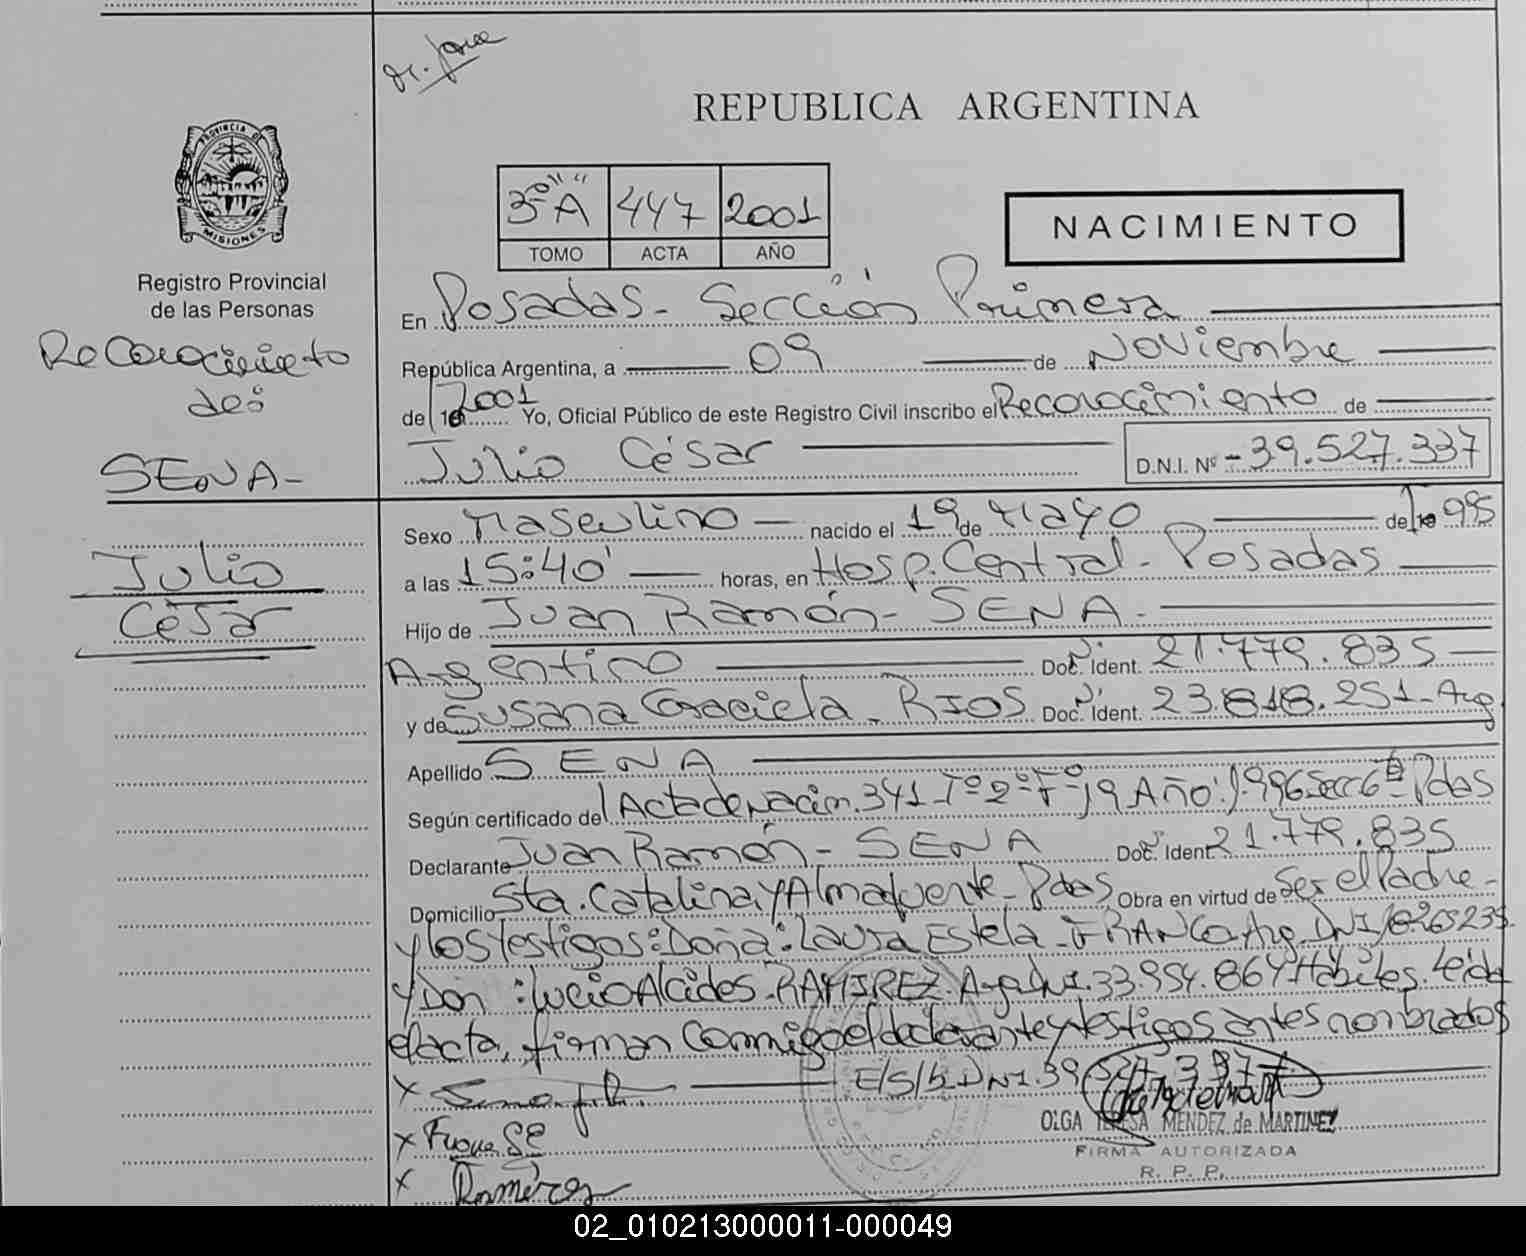 REPUBLICA ARGENTINA
3º "A" 447 2001
TOMO ACTA AÑO
NACIMIENTO
PROVINCIA DE
MISIONES
Registro Provincial
de las Personas
Reconocimiento
de:
SENA-
Julio
César
En Posadas - Sección Primera
República Argentina, a 09 de Noviembre
de 2001 Yo, Oficial Público de este Registro Civil inscribo el Reconocimiento de
Julio César D.N.I. Nº -39.527.337
Sexo Masculino nacido el 19 de Mayo de 1995
a las 15:40' horas, en Hosp. Central - Posadas
Hijo de Juan Ramón - SENA -
Argentino Doc. Ident. 21.779.835
y de Susana Graciela - RIOS Doc. Ident. 23.818.251 - Arg
Apellido SENA
Según certificado de Acta de Nacim. 341 - Tº 2º - Fº 19 Año: 1996 Secc 6ª Pdas
Declarante Juan Ramón - SENA Doc. Ident. 21.779.835
Domicilio Sta. Catalina y Almafuerte - Pdas Obra en virtud de Ser el Padre -
y los testigos: Doña: Laura Estela - FRANCO Arg. DNI
y Don: Lucio Alcides - RAMIREZ Arg DNI. 33.954.864 Hábiles. Leída
el acta, firman conmigo el declarante y testigos antes nombrados
E/S/b. DNI. 39
x
x
x Ramirez
OLGA TERESA MENDEZ de MARTINEZ
FIRMA AUTORIZADA
R. P. P.
02_010213000011-000049